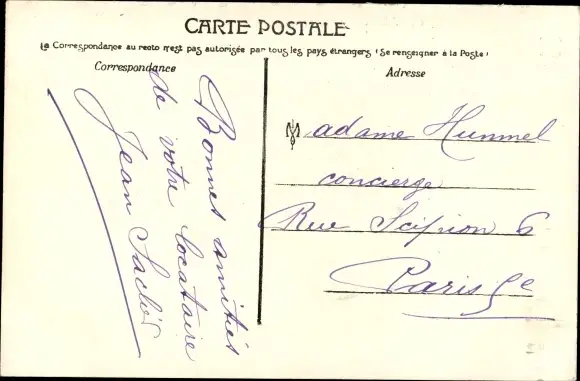 CARTE POSTALE
La Correspondance au recto n'est pas autorisée par tous les pays étrangers (Se renseigner à la Poste)
Correspondance
Adresse
Bonnes amitiés
de votre locataire
Jean
Madame Hummel
concierge
Rue Scipion 6
Paris 5e